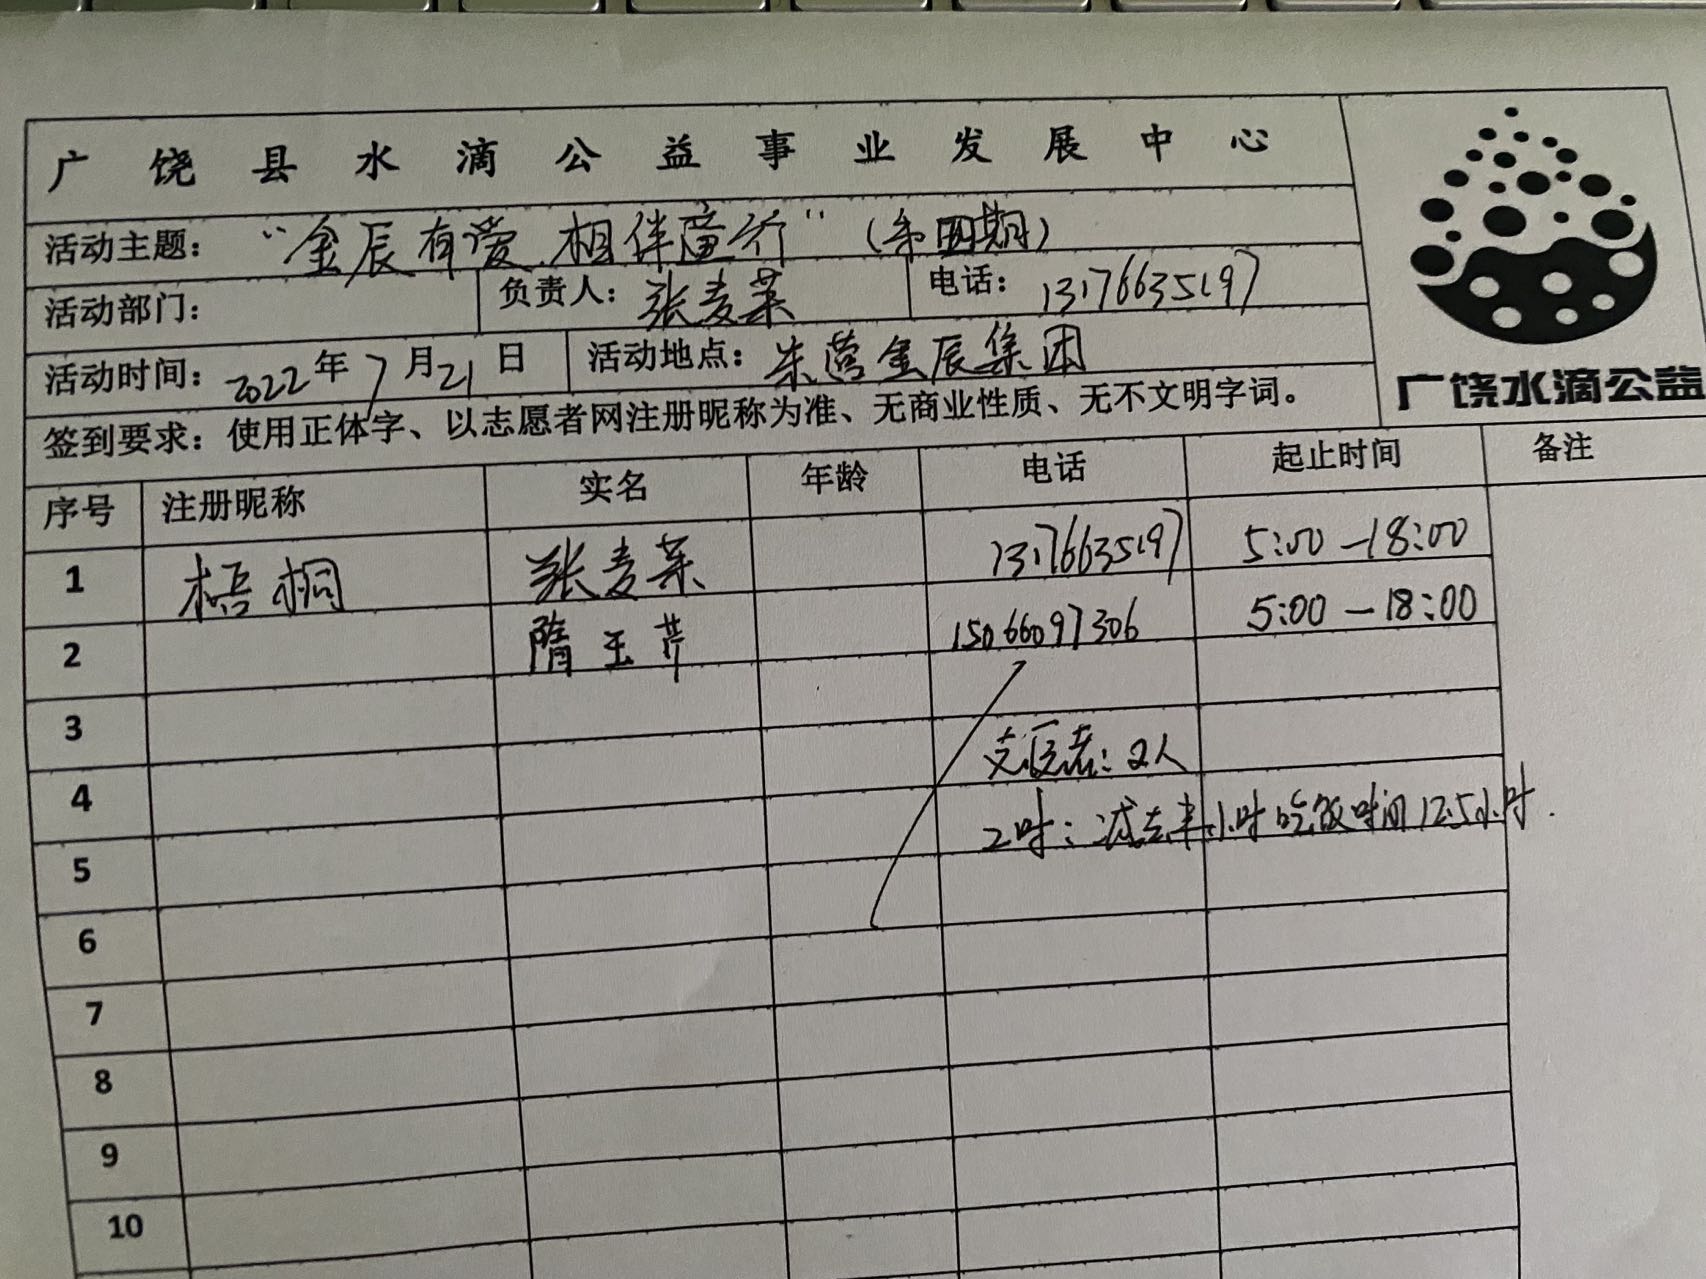 广饶县水滴公益事业发展中心
活动主题："金辰有爱.相伴童行"（第四期）
活动部门： 负责人：张麦荣 电话：13176635197
活动时间：2022年7月21日 活动地点：朱营金辰集团
广饶水滴公益
签到要求：使用正体字、以志愿者网注册昵称为准、无商业性质、无不文明字词。
序号 注册昵称 实名 年龄 电话 起止时间 备注
1 梧桐 张麦荣 13176635197 5:00-18:00
2 隋玉芹 15066097306 5:00-18:00
3
4 志愿者:2人
5 工时:减去半小时吃饭时间12.5小时.
6
7
8
9
10